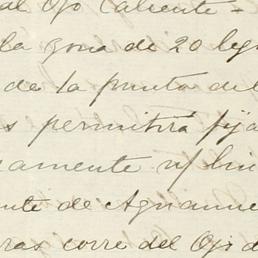 al Ojo Caliente -
la zona de 20 leg
de la punta del
s permitirá fija
amente n/ lin
nte de Aguanue
ras corre del Ojo d